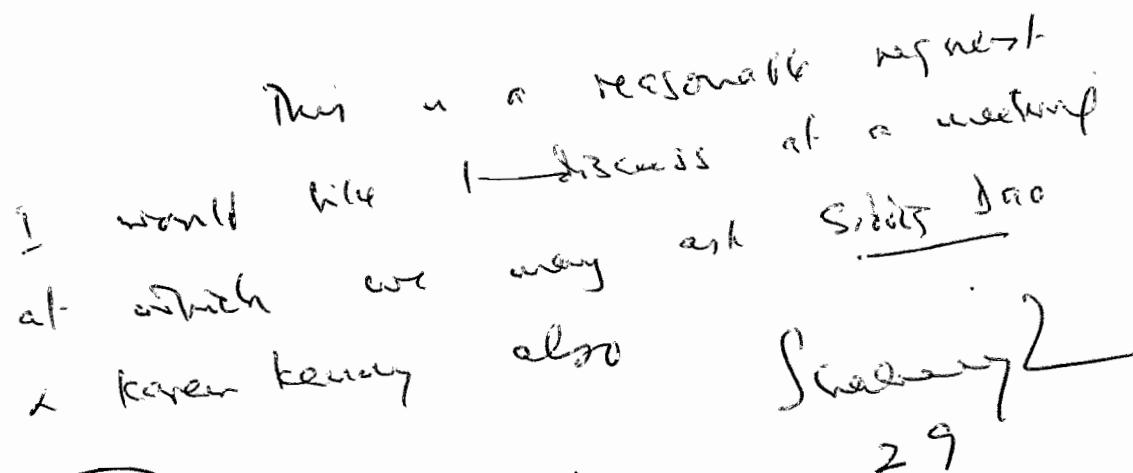 This is a reasonable request
I would like to discuss at a meeting
at which we may ask
& Karen also
29